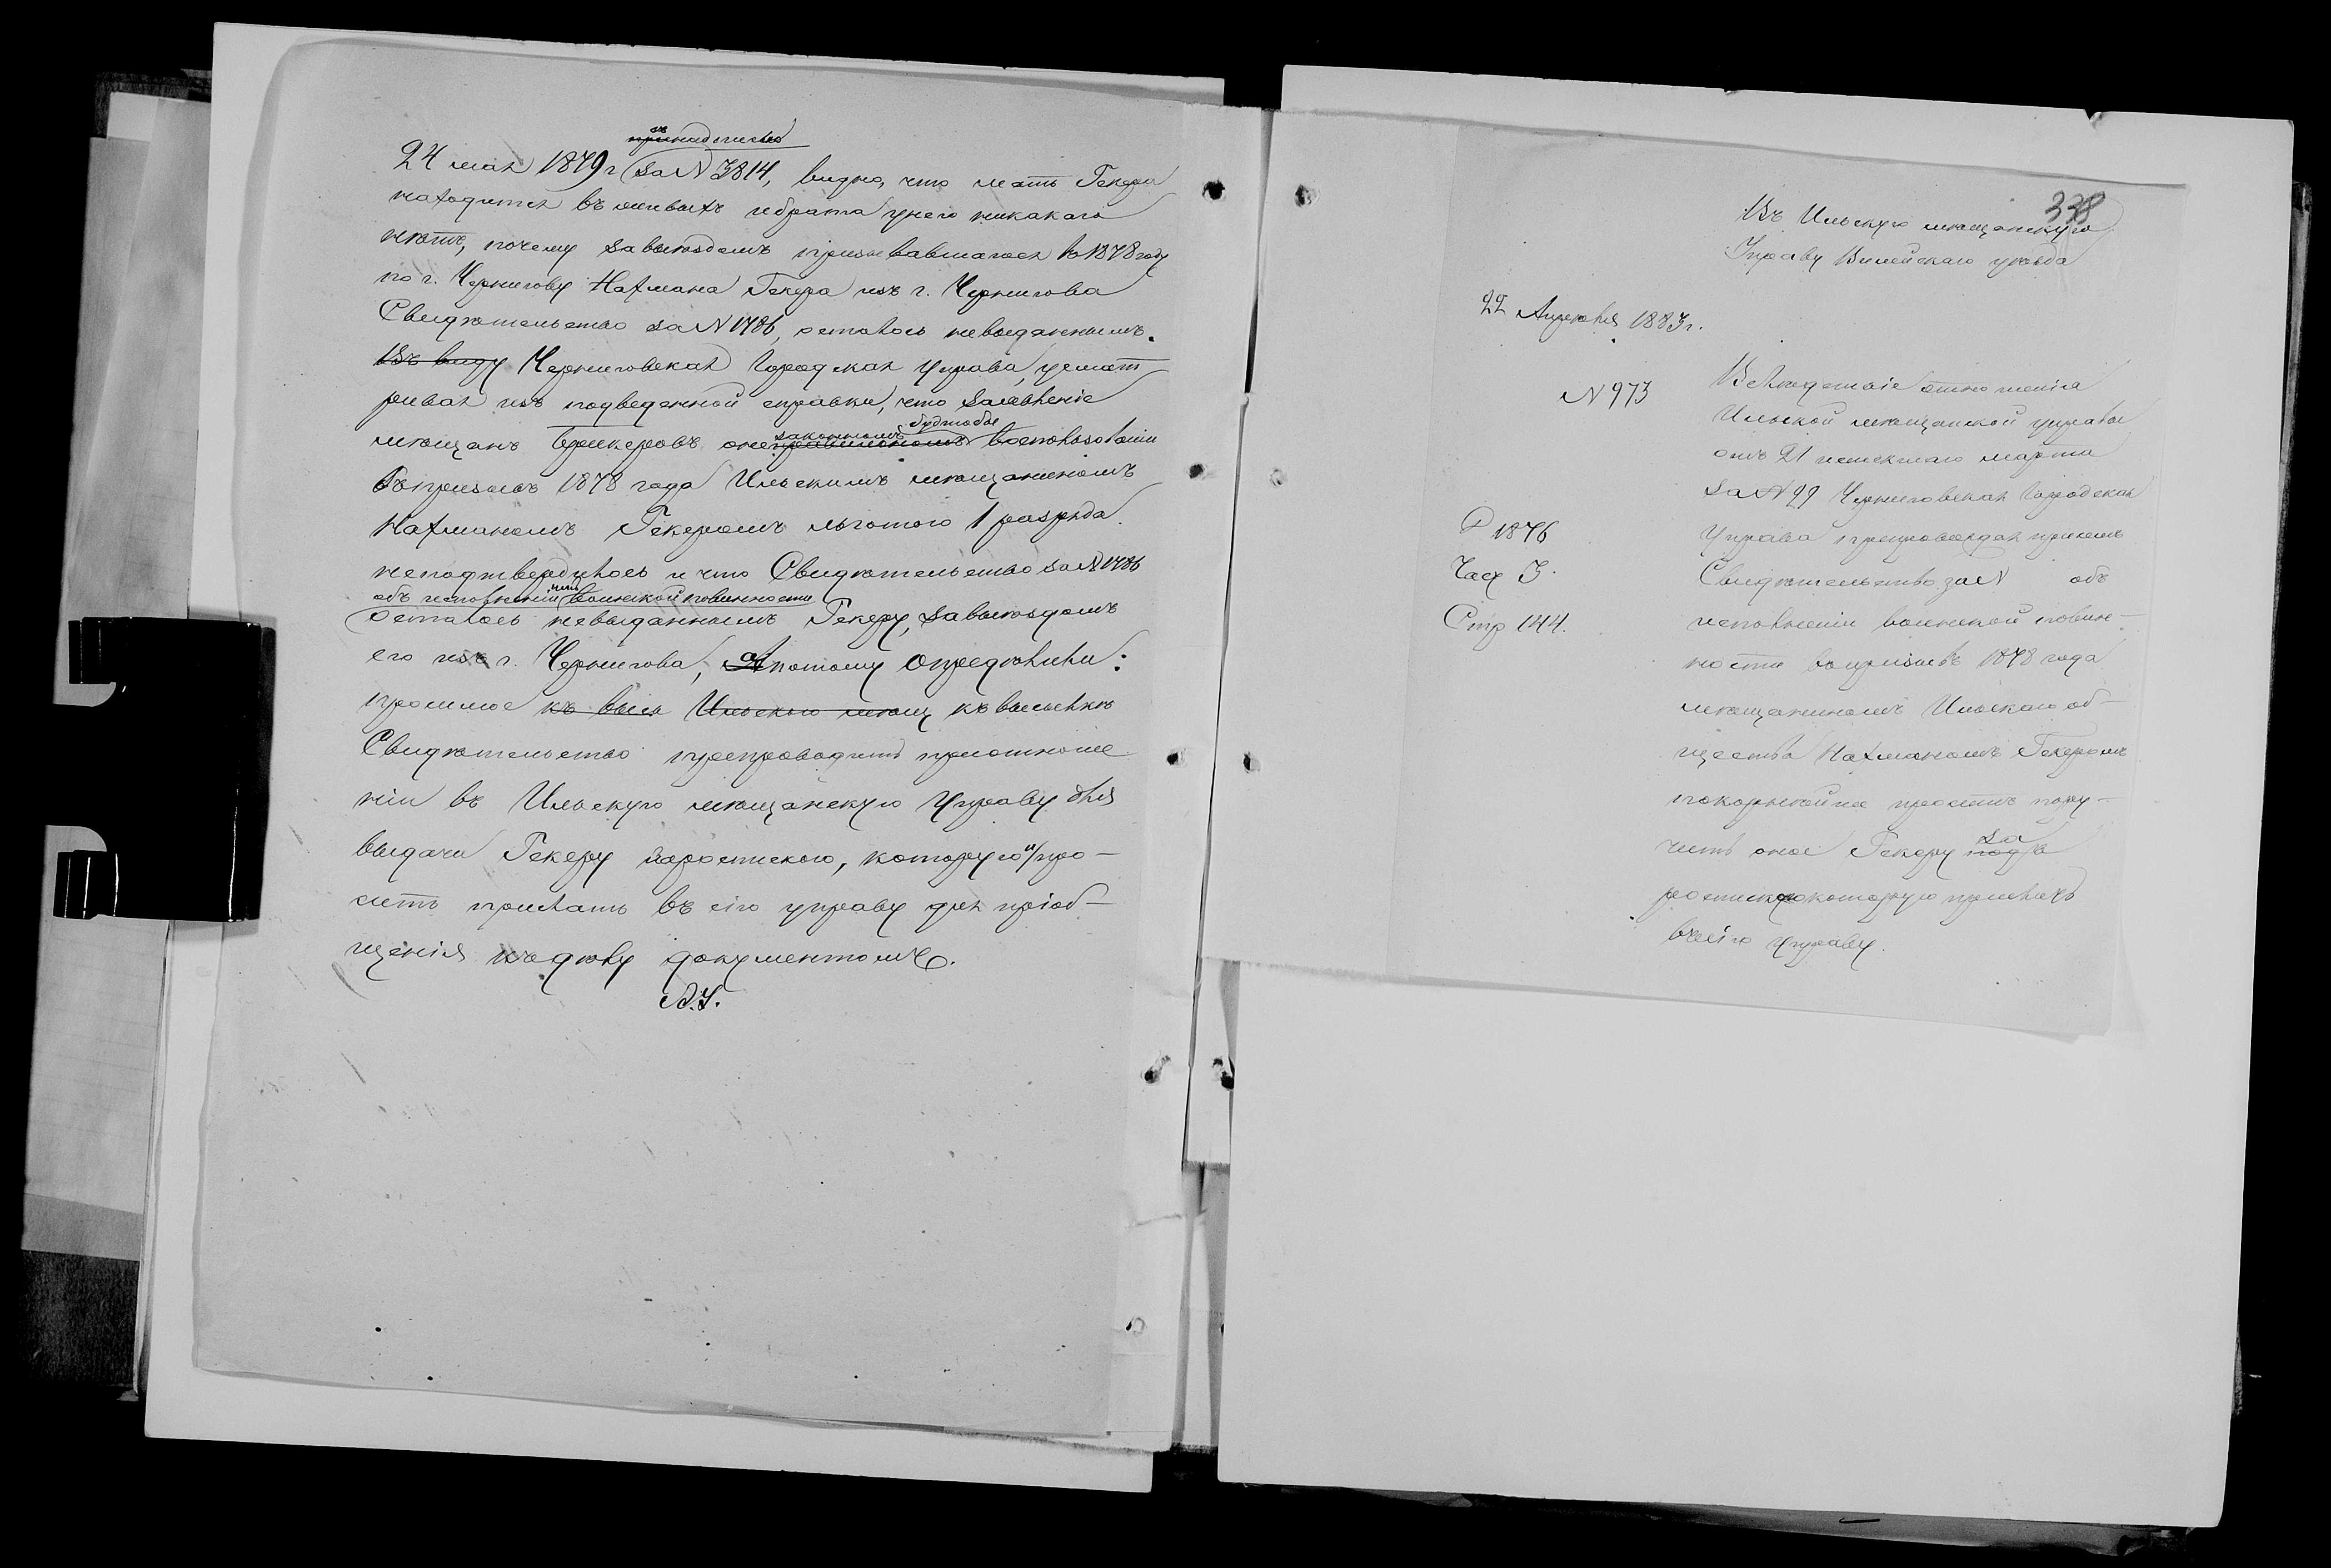 съ надписью
24 мая 1879 г за N 3814, видно, что мать Гекера
находится въ живыхъ и брата у него никакого
нѣтъ, почему за выѣздомъ призывавшагося въ 1878 году
по г. Чернигову Нахмана Гекера изъ г. Чернигова
Свидѣтельство за N 1786, осталось невыданнымъ.
Въ виду Черниговская Городская Управа, усмат
ривая изъ подведенной справки, что заявленіе
законномъ будто бы
мѣщанъ о неправильномъ воспользованіи
въ призывъ 1878 года Ильскимъ мѣщаниномъ
Нахманомъ Гекеромъ льготою 1 разряда
неподтвердилось и что Свидѣтельство за N 1786
объ исполненіи имъ воинской повинности
осталось невыданнымъ Гекеру, за выѣздомъ
его изъ г. Чернигова, а потому Опредѣлили:
просимое къ высы Ильскою мѣщ къ высылкѣ
Свидѣтельство препроводить при отноше
ніи въ Ильскую мѣщанскую Управу для
выдачи Гекеру подъ росписку, которую и про-
сить прислать въ сію управу для пріоб-
щенія къ дѣлу документомъ.
338
Въ Ильскую мѣщанскую
Управу Вилейскаго уѣзда
22 Апрѣля 1883 г.
N 973
Вслѣдствіе отношенія
Ильской мѣщанской управы
отъ 21 истекшаго марта
за N 99 Черниговская Городская
Р 1876
Управа препровождая при семъ
Част 3.
Свидѣтельство за N объ
Стр 144.
исполненіи воинской повин-
ности въ призывъ 1878 года
мѣщаниномъ Ильскаго об-
щества Нахманомъ Гекеромъ
покорнѣйше проситъ пору-
чить оное Гекеру за
росписку которую прислать
въ сію управу.